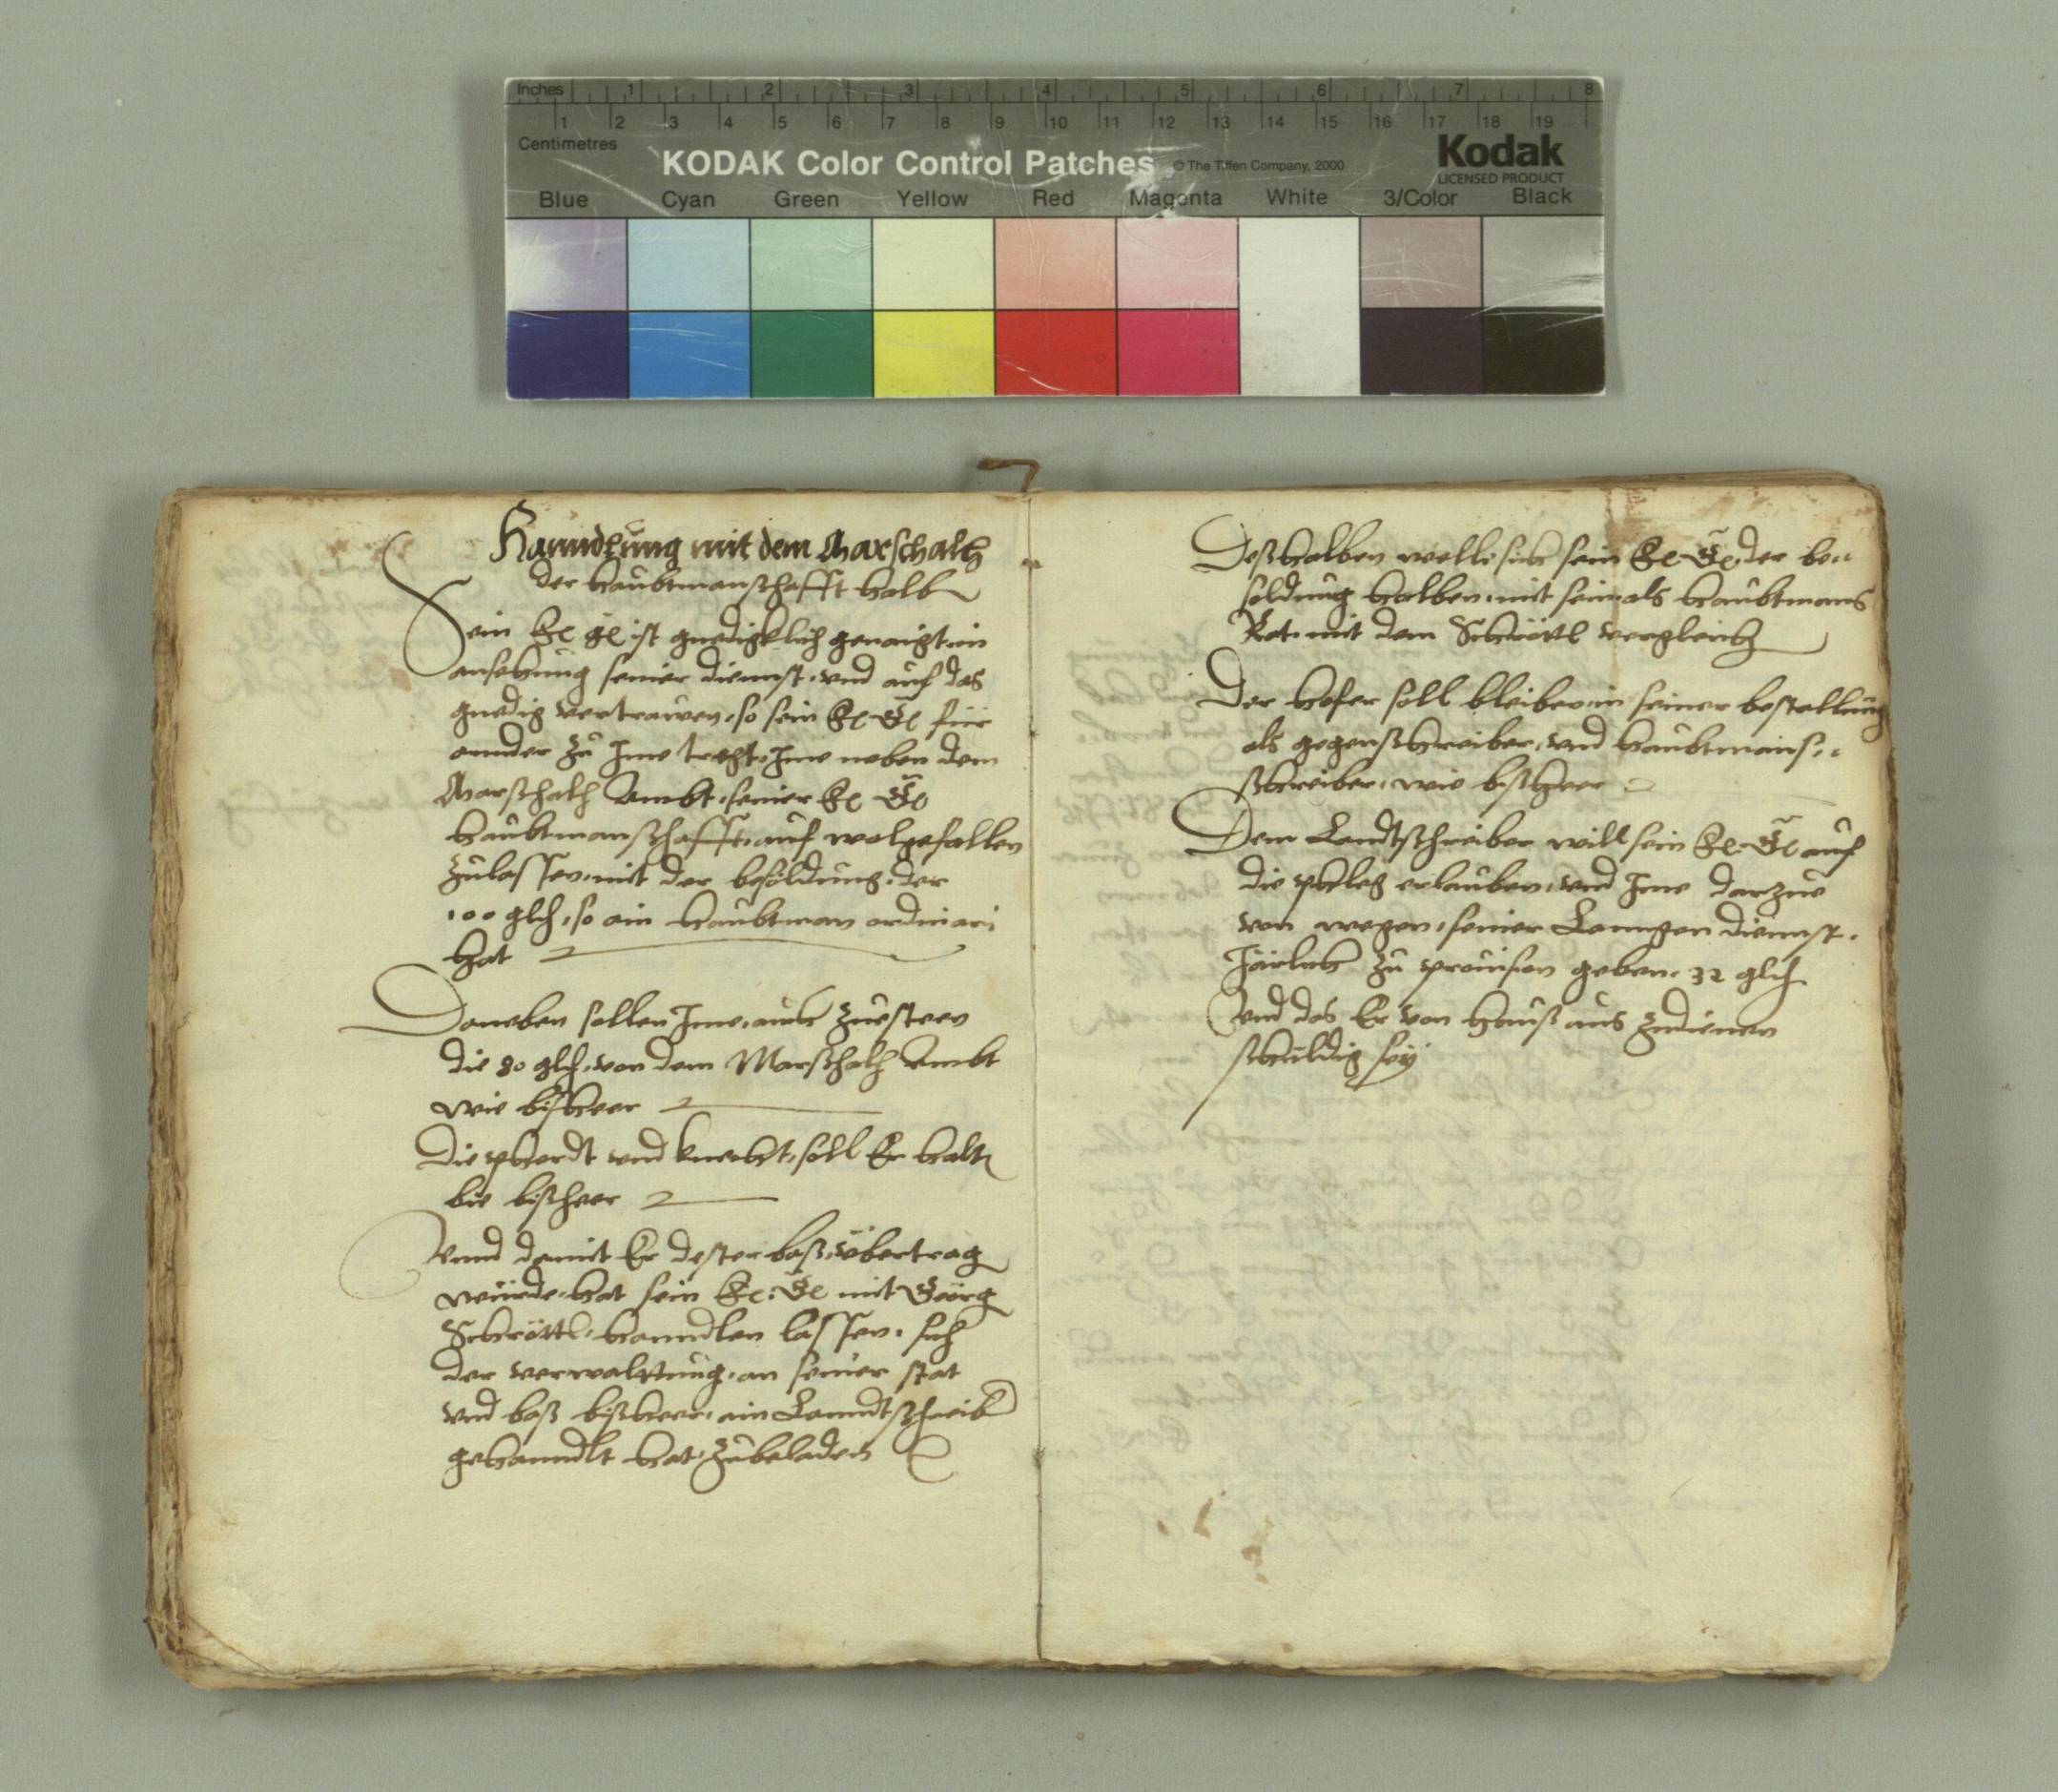 Inches 1 2 3 4 5 6 7 8
1 2 3 4 5 6 7 8 9 10 11 12 13 14 15 16 17 18 19
Centimetres
KODAK Color Control Patches © The Tiffen Company, 2000
Kodak
LICENSED PRODUCT
Blue Cyan Green Yellow Red Magenta White 3/Color Black
Hanndlung mit dem Marschalh
der haubtmanschafft halb
Sein fe ge ist gnedigklich genaigt in
ansehung seiner diennst, vnd auf das
gnedig vertrawen, so sein fe Ge für
annder zu Jme tregt, Jme neben dem
Marschalh Ambt, seiner fe Ge
haubtmanschafft, auf wolgefallen
zulassen, mit der besoldung, der
100 glh, so ain haubtman ordinari
hat
Daneben sollen Jme, auch zuesteen
die 80 glh, von dem Marschalh Ambt
wie bisheer
Die pherdt vnd knecht, soll Er halt
wie bisheer
Vnnd damit Er dester bass, übertrag
würde, hat sein fe: Ge mit Görg
Schröttl, hanndlen lassen, sich
der verwaltung, an seiner stat
vnd bass bissheer, ain Lanndtschreib
gehanndlt hat, zubeladen
Desshalben welle sich sein fe Ge, der be„
soldung halben, mit sein als haubtmans
Rat, mit dem Schröttl vergleich
Der hofer soll bleiben in seiner bestallung
als gegenschreiber, vnd haubtmans„
schreiber, wie bissheer
Dem Landtschreiber will sein fe: Ge auf
die phleg erlauben, vnd Jme darzue
von wegen, seiner Lanngen diennst,
Järlich zu prouision geben, 32 glh
Vnd das Er von hauss aus zudienen
schuldig sey